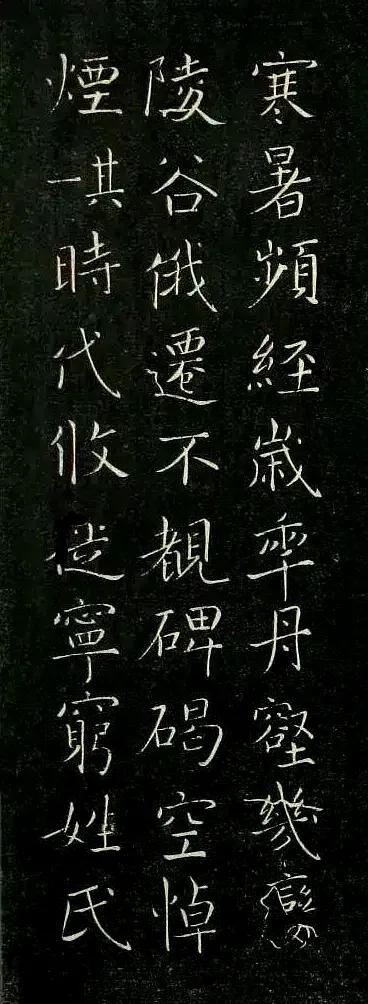 寒暑頻經歲年丹壑幾變
陵谷俄遷不覩碑碣空悼
煙一其時代攸徙寧窮姓氏